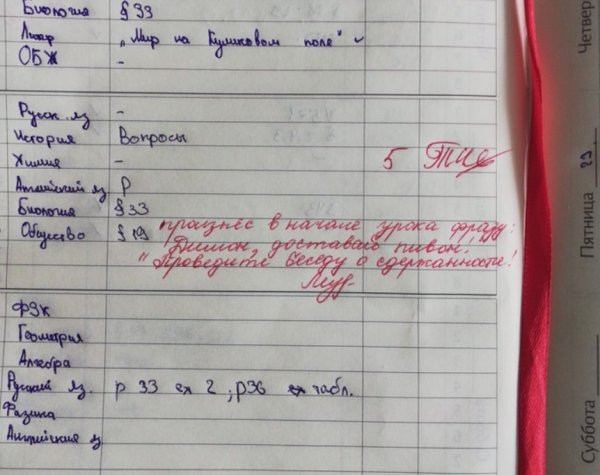 Биология § 33
Литер „Мир на Куликовом поле"
ОБЖ -
Четвер
Русск. яз -
История Вопросы
Химия - 5
Английский яз. Р
Биология § 33
Общество § 19 произнёс в начале урока фразу:
Димон, доставай пивон!
"Проведите беседу о сдержанности!
Пятница 29
ФЗК
Геометрия
Алгебра
Русский яз. р 33 2; р36 табл.
Физика
Английский яз
Суббота